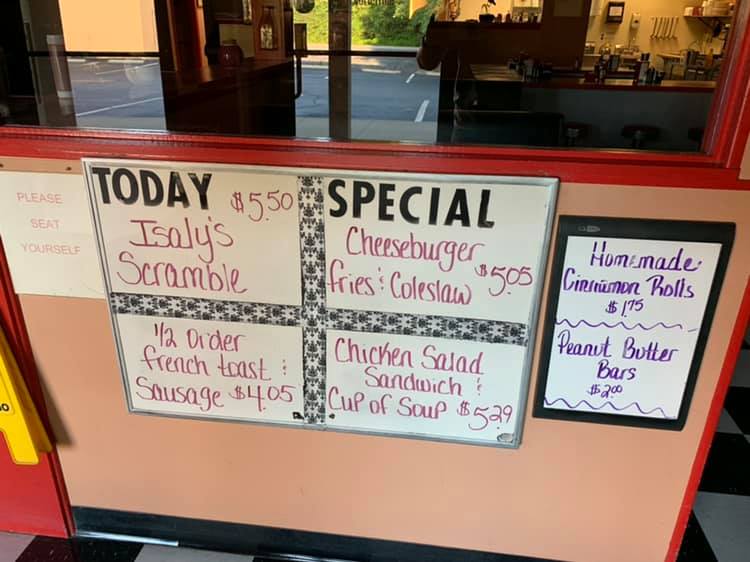 PLEASE
SEAT
YOURSELF
TODAY
$5.50
Isaly's
Scramble
SPECIAL
Cheeseburger
fries & Coleslaw $5.05
1/2 Order
french toast &
Sausage $4.05
Chicken Salad
Sandwich &
Cup of Soup $5.29
Homemade
Cinnamon Rolls
$1.75
Peanut Butter
Bars
$2.00